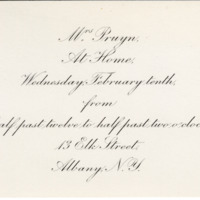 Mrs Pruyn,
At Home,
Wednesday February tenth,
from
half past twelve to half past two o'clock
13 Elk Street,
Albany, N.Y.